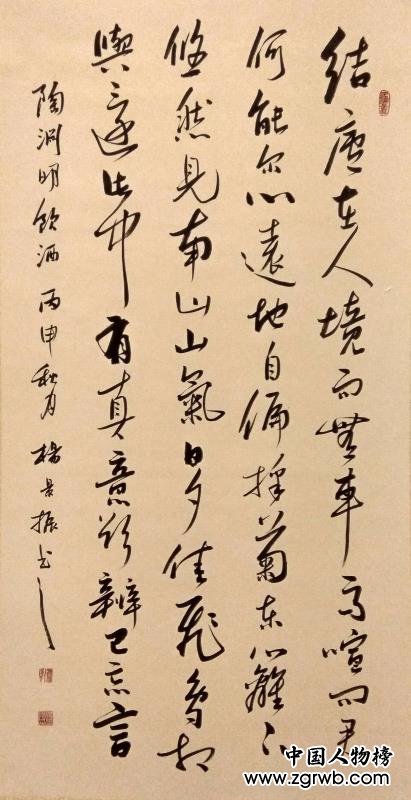 结廬在人境而無車马喧问君
何能尔心遠地自偏採菊东籬下
悠然見南山山氣日夕佳飛鳥相
與還此中有真意欲辨已忘言
陶渊明饮酒 丙申秋月 楊景振书
中国人物榜
www.zgrwb.com